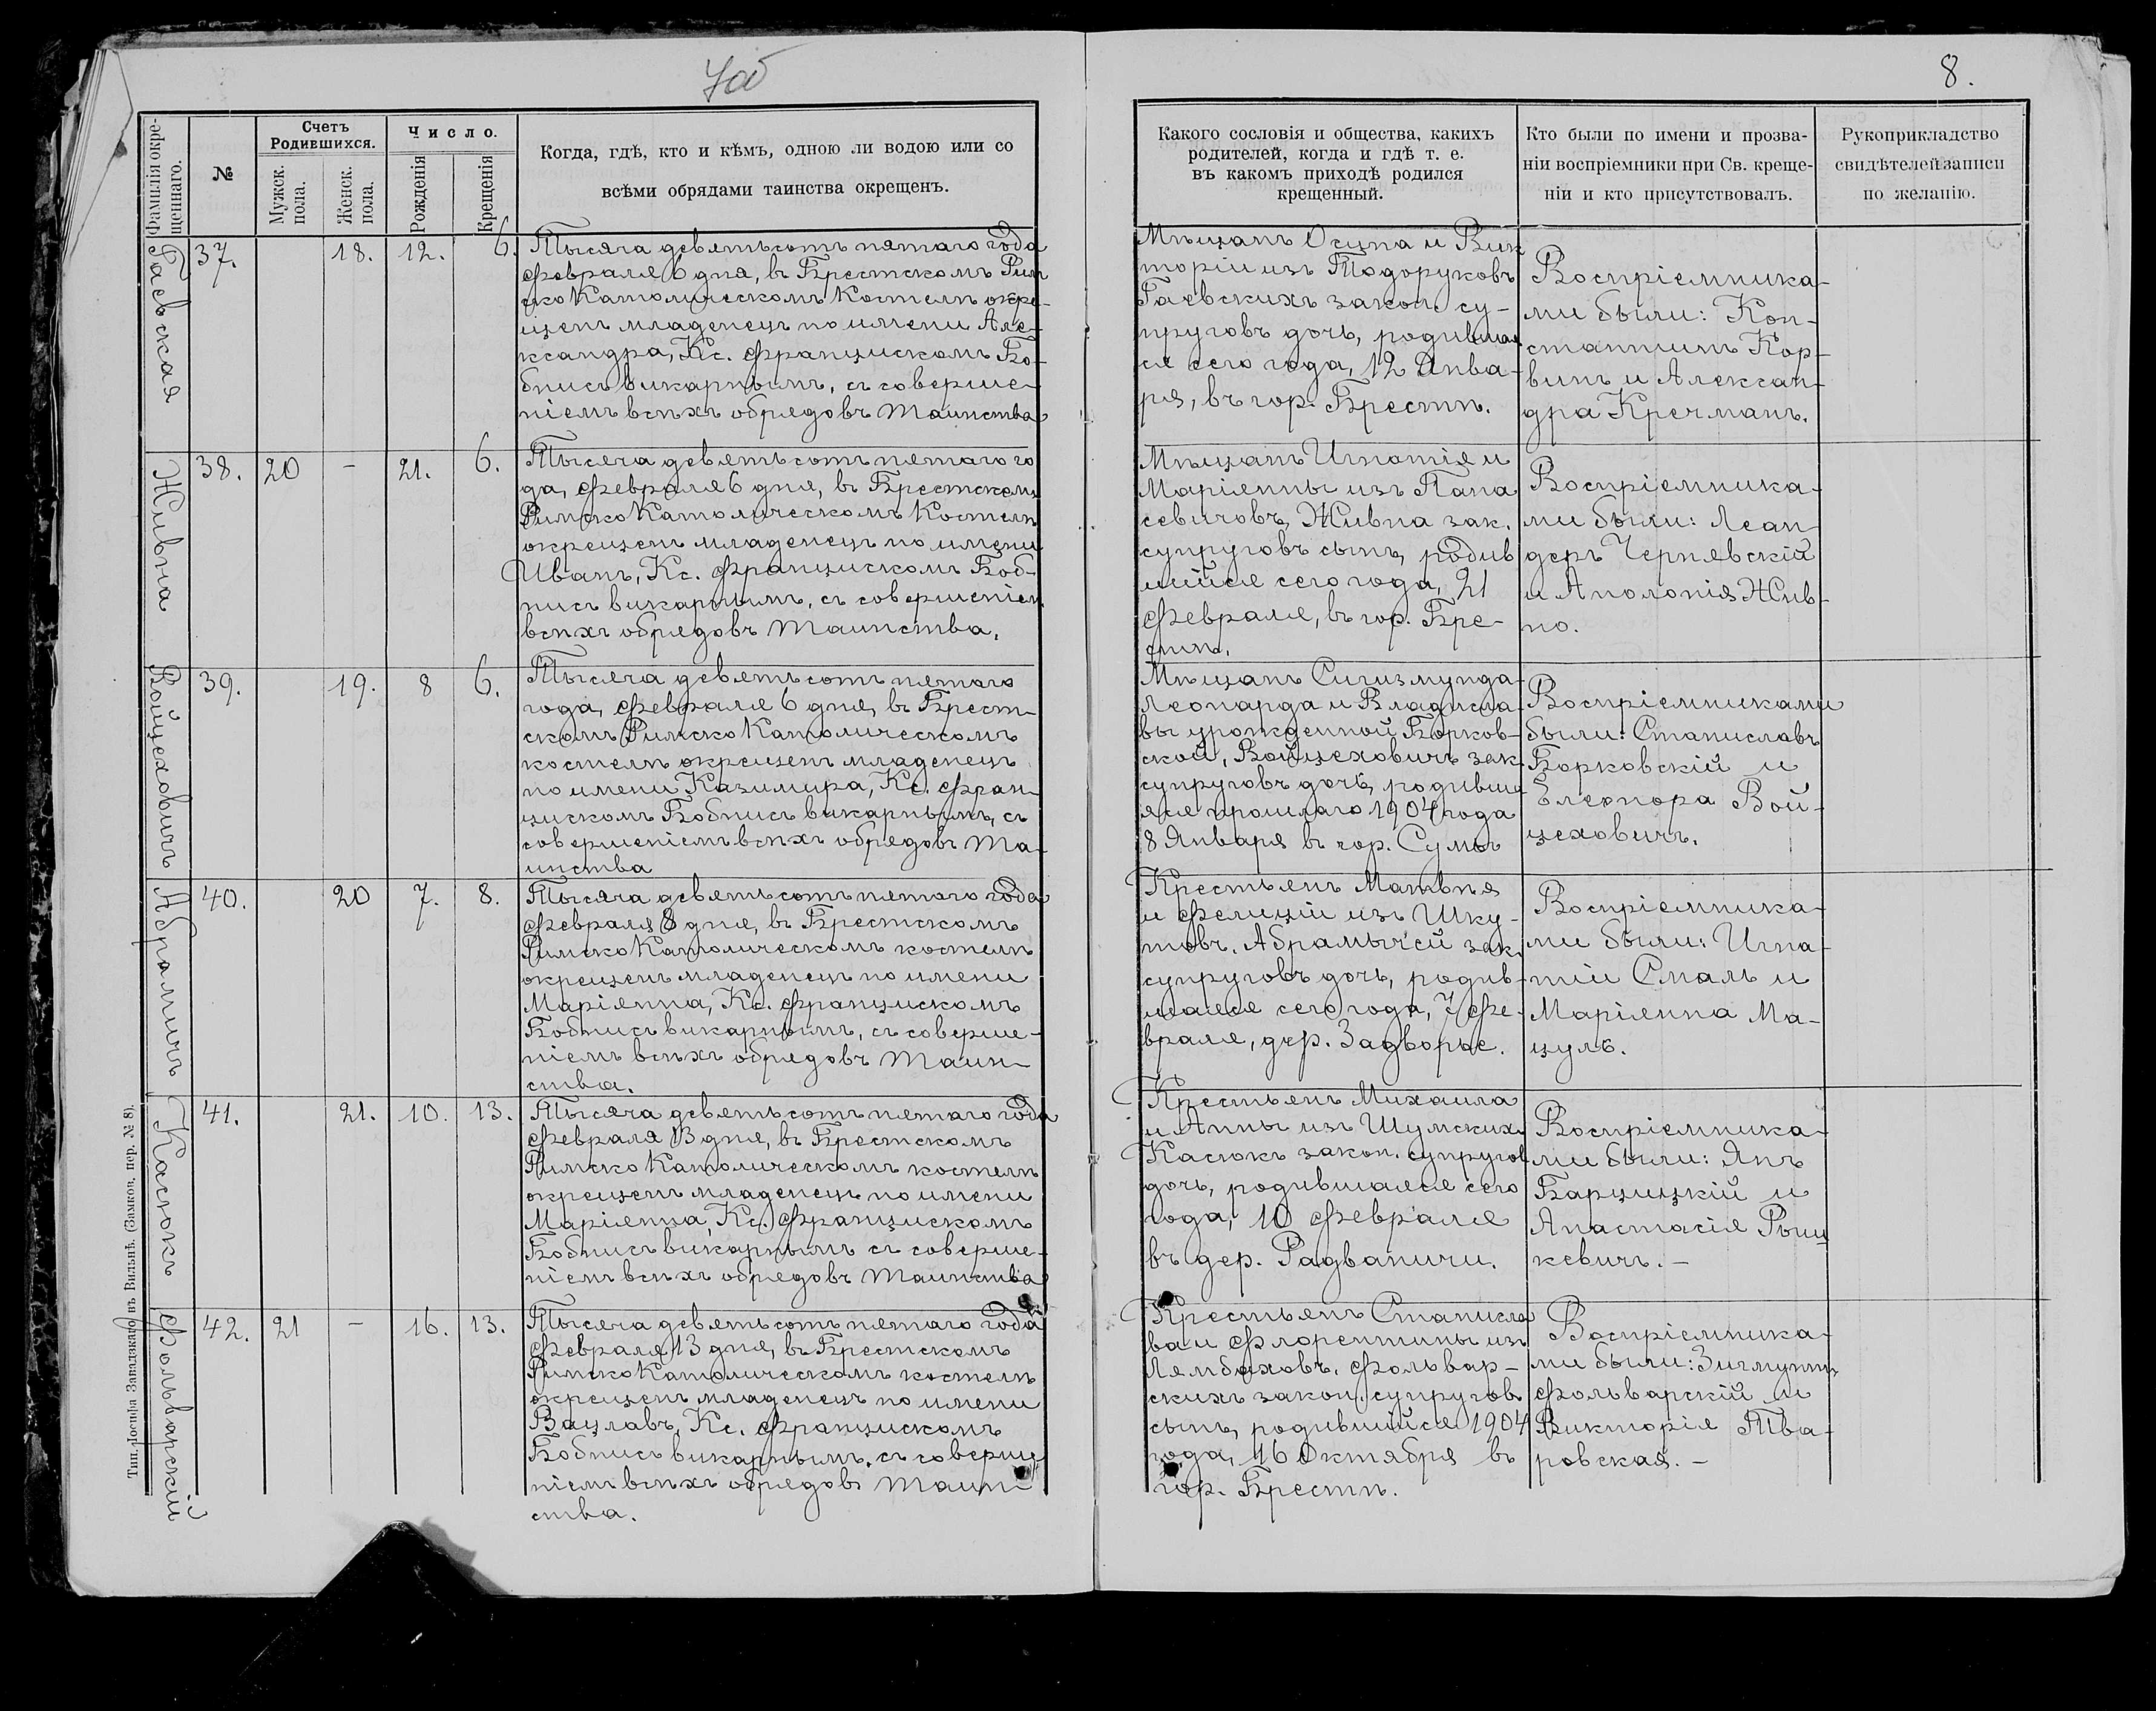 7об
8.
Фамилія окре-
щеннаго.
№
Счетъ
Родившихся.
Мужск.
пола.
Женск.
пола.
Число.
Рожденія
Крещенія
Когда, гдѣ, кто и кѣмъ, одною ли водою или со
всѣми обрядами таинства окрещенъ.
Какого сословія и общества, какихъ
родителей, когда и гдѣ т. е.
въ какомъ приходѣ родился
крещенный.
Кто были по имени и прозва-
ніи воспріемники при Св. креще-
ніи и кто присутствовалъ.
Рукоприкладство
свидѣтелей записи
по желанію.
Гаевская
37.
18.
12.
6.
Тысяча девятьсотъ пятаго года
февраля 6 дня, въ Брестскомъ Рим
ско Католическомъ Костелѣ окре-
щенъ младенецъ по имени Але-
ксандра, Кс. Францискомъ Бо-
бнисъ викарнымъ, съ соверше-
ніемъ всѣхъ обрядовъ Таинства
Мѣщанъ Осипа и Вик
торіи изъ Тодоруковъ
Гаевскихъ закон. су-
пруговъ дочь, родившая
ся сего года, 12 Янва-
ря, въ гор. Брестѣ.
Воспріемника-
ми были: Кон-
стантинъ Кор-
винъ и Алексан-
дра Кречманъ.
Живна
38.
20
-
21.
6.
Тысяча девятьсотъ пятаго го
да, февраля 6 дня, въ Брестскомъ
Римско Католическомъ Костелѣ
окрещенъ младенецъ по имени
Иванъ, Кс. Францискомъ Боб-
нисъ викарнымъ, съ совершеніем
всѣхъ обрядовъ Таинства.
Мѣщанъ Игнатія и
Маріянны изъ Пана
севичовъ, Живна зак.
супруговъ сынъ, родив
шійся сего года, 21
февраля, въ гор. Бре-
стѣ.
Воспріемника-
ми были: Леан
деръ Чернявскій
и Аполонія Жив-
но.
Войцеховичъ
39.
19.
8
6.
Тысяча девятьсотъ пятаго
года, февраля 6 дня, въ Брест-
скомъ Римско Католическомъ
костелѣ окрещенъ младенецъ
по имени Казимира, Кс. Фран-
цискомъ Бобнисъ викарнымъ, съ
совершеніемъ всѣхъ обрядовъ Та-
инства
Мѣщанъ Сигизмунда-
Леонарда и Владисла-
вы урожденной Борков-
ской, Войцеховичъ зак.
супруговъ дочь, родивша
яся прошлаго 1904 года
8 Января въ гор. Сумы
Воспріемниками
были: Станиславъ
Борковскій и
Елеонора Вой-
цеховичъ.
Абрамичъ
40.
20
7.
8.
Тысяча девятьсотъ пятаго года
февраля 8 дня, въ Брестскомъ
Римско Католическомъ костелѣ
окрещенъ младенецъ по имени
Маріянна, Кс. Францискомъ
Бобнисъ викарнымъ, съ соверше-
ніемъ всѣхъ обрядовъ Таин-
ства.
Крестьянъ Матвѣя
и Фелиціи изъ Шку-
товъ. зак.
супруговъ дочь, родив-
шаяся сего года, 7 фе-
враля, дер. Задворье.
Воспріемника-
ми были: Игна-
тій Смаль и
Маріянна Ма-
цуль.
Касюкъ
41.
21.
10.
13.
Тысяча девятьсотъ пятаго года
февраля 13 дня, въ Брестскомъ
Римско Католическомъ костелѣ
окрещенъ младенецъ по имени
Маріянна, Кс. Францискомъ
Бобнисъ викарнымъ съ соверше-
ніемъ всѣхъ обрядовъ Таинства
Крестьянъ Михаила
и Анны изъ Шумскихъ
Касюкъ закон. супругов
дочь, родившаяся сего
года, 10 февраля
въ дер. Радваничи.
Воспріемника-
ми были: Янъ
Барщицкій и
Анастасія Рыш
кевичъ. -
Фольварскій
42.
21
-
16.
13.
Тысяча девятьсотъ пятаго года
февраля 13 дня, въ Брестскомъ
Римско Католическомъ костелѣ
окрещенъ младенецъ по имени
Вацлавъ, Кс. Францискомъ
Бобнисъ викарнымъ, съ соверше
ніемъ всѣхъ обрядовъ Таин-
ства.
Крестьянъ Станисла
ва и Флорентины изъ
Лембаховъ. Фольвар-
скихъ закон. супругов
сынъ, родившійся 1904
года, 16 Октября въ
гор. Брестѣ.
Воспріемника-
ми были: Зигмунтъ
Фольварскій и
Викторія Тва-
ровская. -
Тип. Іосифа Завадзкаго въ Вильнѣ. (Замков. пер. № 8).